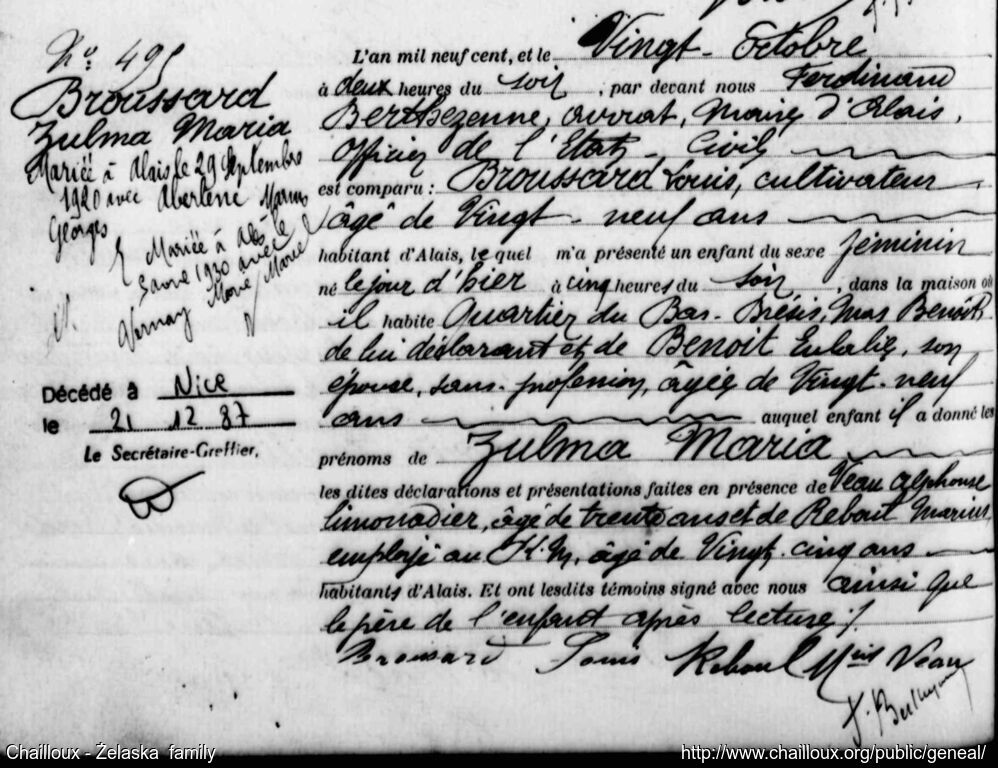 N° 495
Broussard
Zulma Maria
Mariée à Alais le 29 Septembre
1920 avec Aberlene Marius
Georges
Mariée à Alès le
1930 avec
Marcel
Vernay
Décédé à Nice
le 21 12 87
Le Secrétaire-Greffier,
L'an mil neuf cent, et le Vingt - Octobre
à deux heures du soir, par devant nous Ferdinand
Berthezenne, avocat, Maire d'Alais,
Officier de l'Etat - Civil
est comparu : Broussard Louis, cultivateur
âgé de Vingt - neuf ans
habitant d'Alais, lequel m'a présenté un enfant du sexe féminin
né le jour d'hier à cinq heures du soir, dans la maison où
il habite Quartier du Bas - Mas Benoit
de lui déclarant et de Benoit Eulalie, son
épouse, sans - profession, âgée de Vingt - neuf
ans auquel enfant il a donné les
prénoms de Zulma Maria
les dites déclarations et présentations faites en présence de Veau Alphonse
limonadier, âgé de trente ans et de Reboul Marius,
employé au âgé de Vingt - cinq ans
habitants d'Alais. Et ont lesdits témoins signé avec nous ainsi que
le père de l'enfant après lecture /.
Broussard Louis Reboul Mius Veau
Chailloux - Żelaska family
http://www.chailloux.org/public/geneal/